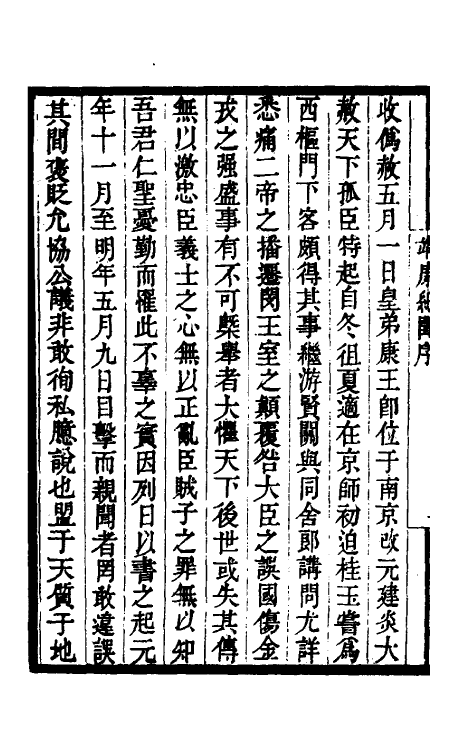 靖康紀聞序
收僞赦五月一日皇弟康王卽位于南京改元建炎大
赦天下孤臣特起自冬徂夏適在京師初迫桂玉嘗爲
西樞門下客頗得其事繼游賢關與同舍郎講問尤詳
悉痛二帝之播遷閔王室之顛覆咎大臣之誤國傷金
戎之强盛事有不可槩舉者大懼天下後世或失其傳
無以激忠臣義士之心無以正亂臣賊子之罪無以知
吾君仁聖憂勤而罹此不辜之實因列日以書之起元
年十一月至明年五月九日目擊而親聞者罔敢違誤
其間褒貶允協公議非敢徇私臆說也盟于天質于地